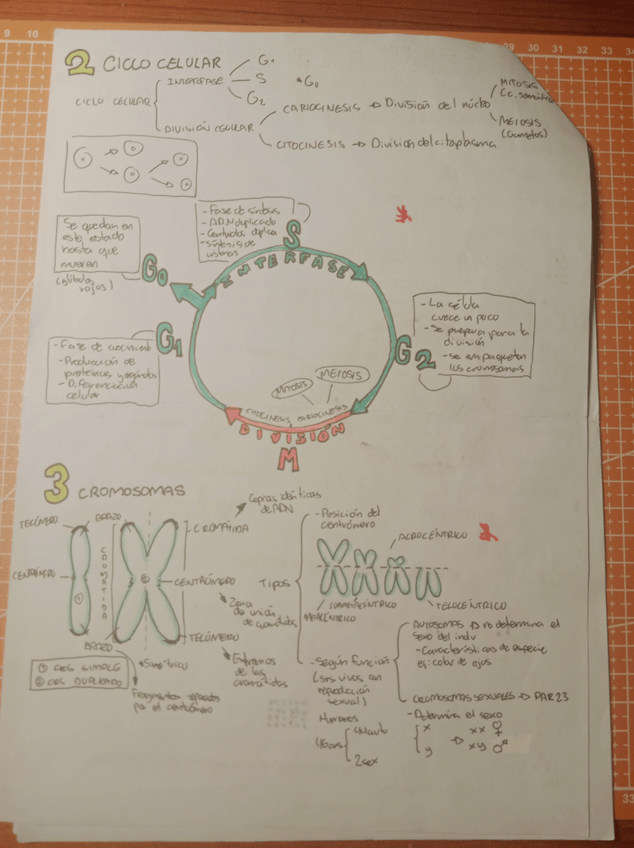 2 CICLO CELULAR
CICLO CELULAR
INTERFASE
G1
S
G2
*G0
DIVISIÓN CELULAR
CARIOCINESIS → División del núcleo
MITOSIS
MEIOSIS
(Gametos)
CITOCINESIS → División del citoplasma
Se quedan en
este estado
hasta que
mueren
(glóbulos
rojos)
G0
- Fase de síntesis
- ADN duplicado
- Centriolos duplica
- Síntesis de
histonas
S
INTERFASE
G1
- Fase de crecimiento
- Producción de
proteínas y
- Diferenciación
celular
G2
- La célula
crece un poco
- Se prepara para la
división
- Se empaquetan
los cromosomas
MITOSIS
MEIOSIS
CITOCINESIS CARIOCINESIS
DIVISIÓN
M
3 CROMOSOMAS
TELÓMERO
CENTRÓMERO
BRAZO
CROMÁTIDA
BRAZO
CROMÁTIDA
Copias idénticas
de ADN
CENTRÓMERO
Zona
de unión
de cromátidas
TELÓMERO
Extremos
de las
cromátidas
① CRS SIMPLE
② CRS DUPLICADO
*Simétrico
Fragmentos separados
por el centrómero
Tipos
- Posición del
centrómero
ACROCÉNTRICO
SUBMETACÉNTRICO
METACÉNTRICO
TELOCÉNTRICO
- Según función
(srs vivos con
reproducción
sexual)
AUTOSOMAS → no determina el
sexo del indv
- Características de especie
ej: color de ojos
CROMOSOMAS SEXUALES → PAR 23
- Determina el sexo
x
y
xx ♀
xy ♂
Humanos
46 crs
44 auto
2 sex
9
10
29
30
31
32
33
34
33